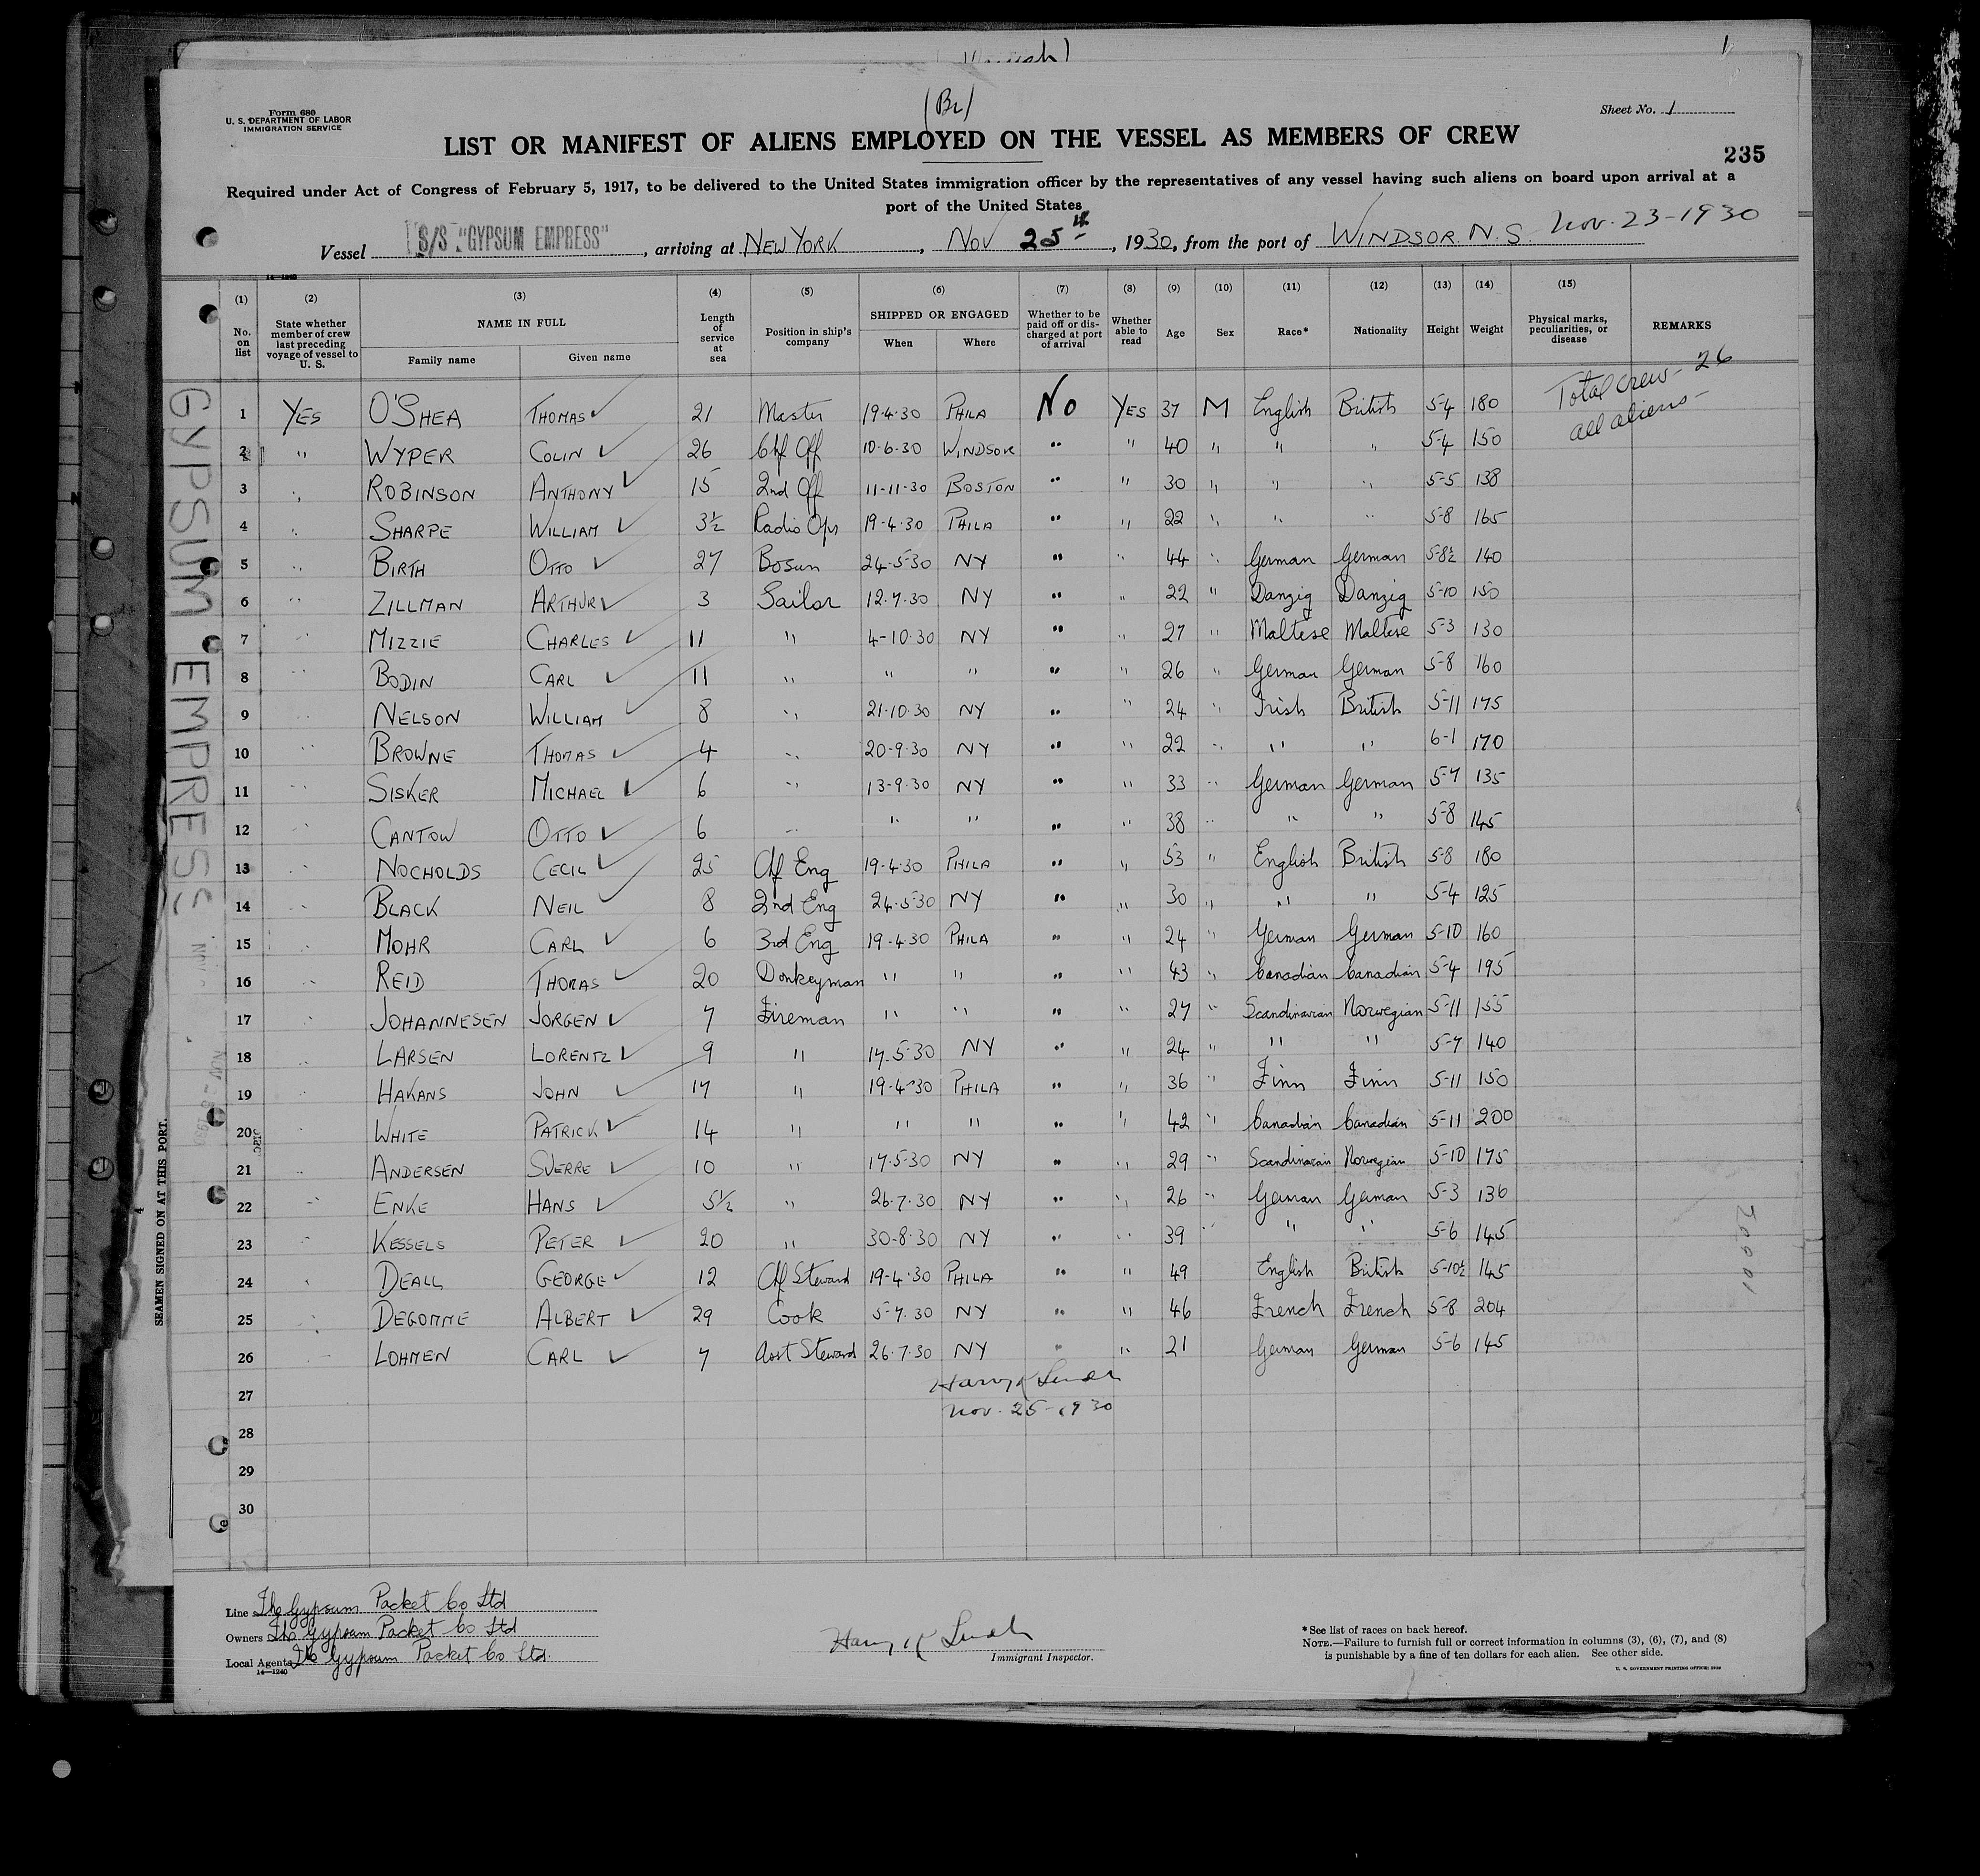 1
(Br)
Form 680
U. S. DEPARTMENT OF LABOR
IMMIGRATION SERVICE
Sheet No. 1
LIST OR MANIFEST OF ALIENS EMPLOYED ON THE VESSEL AS MEMBERS OF CREW
235
Required under Act of Congress of February 5, 1917, to be delivered to the United States immigration officer by the representatives of any vessel having such aliens on board upon arrival at a
port of the United States
Vessel S/S "GYPSUM EMPRESS", arriving at NEW YORK, Nov 25th, 1930, from the port of WINDSOR. N.S. Nov. 23-1930
14—1240
(1) No. on list
(2) State whether member of crew last preceding voyage of vessel to U. S.
(3) NAME IN FULL Family name Given name
(4) Length of service at sea
(5) Position in ship's company
(6) SHIPPED OR ENGAGED When Where
(7) Whether to be paid off or discharged at port of arrival
(8) Whether able to read
(9) Age
(10) Sex
(11) Race*
(12) Nationality
(13) Height
(14) Weight
(15) Physical marks, peculiarities, or disease
REMARKS
Total Crew - 26
all aliens -
1 YES O'SHEA THOMAS 21 Master 19-4-30 PHILA No YES 37 M English British 5-4 180
2 " WYPER COLIN 26 Chf Off 10-6-30 WINDSOR " " 40 " " " 5-4 150
3 " ROBINSON ANTHONY 15 2nd Off 11-11-30 BOSTON " " 30 " " " 5-5 138
4 " SHARPE WILLIAM 3½ Radio Opr 19-4-30 PHILA " " 22 " " " 5-8 165
5 " BIRTH OTTO 27 Bosun 24-5-30 NY " " 44 " German German 5-8½ 140
6 " ZILLMAN ARTHUR 3 Sailor 12.7.30 NY " " 22 " Danzig Danzig 5-10 150
7 " MIZZIE CHARLES 11 " 4-10-30 NY " " 27 " Maltese Maltese 5-3 130
8 " BODIN CARL 11 " " " " " 26 " German German 5-8 160
9 " NELSON WILLIAM 8 " 21-10-30 NY " " 24 " Irish British 5-11 175
10 " BROWNE THOMAS 4 " 20-9-30 NY " " 22 " " " 6-1 170
11 " SISKER MICHAEL 6 " 13-9-30 NY " " 33 " German German 5-7 135
12 " CANTOW OTTO 6 " " " " 38 " " " 5-8 145
13 " NOCHOLDS CECIL 25 Chf Eng 19-4-30 PHILA " " 53 " English British 5-8 180
14 " BLACK NEIL 8 2nd Eng 24-5-30 NY " " 30 " " " 5-4 125
15 " MOHR CARL 6 3rd Eng 19-4-30 PHILA " " 24 " German German 5-10 160
16 " REID THOMAS 20 Donkeyman " " " " 43 " Canadian Canadian 5-4 195
17 " JOHANNESEN JORGEN 7 Fireman " " " " 27 " Scandinavian Norwegian 5-11 155
18 " LARSEN LORENTZ 9 " 17-5-30 NY " " 24 " " " 5-7 140
19 " HAKANS JOHN 17 " 19-4-30 PHILA " " 36 " Finn Finn 5-11 150
20 WHITE PATRICK 14 " " " " " 42 " Canadian Canadian 5-11 200
21 " ANDERSEN SVERRE 10 " 17-5-30 NY " " 29 " Scandinavian Norwegian 5-10 175
22 " ENKE HANS 5½ " 26-7-30 NY " " 26 " German German 5-3 136
23 " KESSELS PETER 20 " 30-8-30 NY " " 39 " " " 5-6 145
24 " DEALL GEORGE 12 Chf Steward 19-4-30 PHILA " " 49 English British 5-10½ 145
25 " DEGOMME ALBERT 29 Cook 5-7-30 NY " " 46 French French 5-8 204
26 " LOHMEN CARL 7 Asst Steward 26-7-30 NY " " 21 German German 5-6 145
27
Nov. 25-1930
28
29
30
GYPSUM EMPRESS
SEAMEN SIGNED ON AT THIS PORT.
4
Line The Gypsum Packet Co Ltd
Owners The Gypsum Packet Co Ltd
Local Agents The Gypsum Packet Co Ltd.
14—1240
Immigrant Inspector.
*See list of races on back hereof.
NOTE.—Failure to furnish full or correct information in columns (3), (6), (7), and (8)
is punishable by a fine of ten dollars for each alien. See other side.